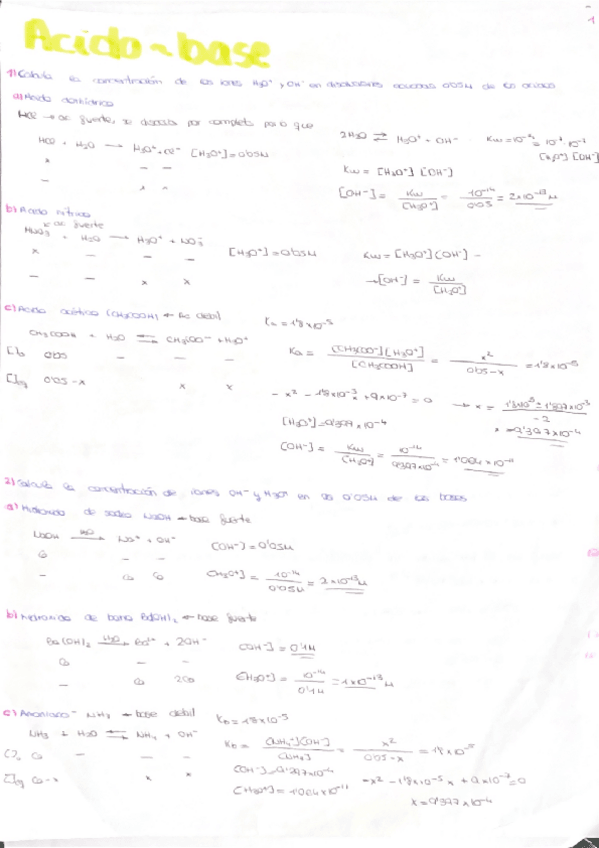 Acido-base
1
1) Calcula la concentración de los iones H3O+ y OH- en disoluciones acuosas 0'05M de los ácidos
a) Ácido clorhídrico
HCl → ac fuerte, se disocia por completo por lo que
HCl + H2O → H3O+ + Cl- [H3O+] = 0'05M
2H2O ⇄ H3O+ + OH-
x - -
- x x
Kw = [H3O+] [OH-]
[OH-] = Kw / [H3O+] = 10^-14 / 0'05 = 2x10^-13 M
b) Ácido nítrico
HNO3 + H2O → H3O+ + NO3-
ac fuerte
x - - -
- - x x
[H3O+] = 0'05M
Kw = [H3O+] [OH-]
→ [OH-] = Kw / [H3O+]
c) Ácido acético (CH3COOH) ← Es débil
Ka = 1'8x10^-5
CH3COOH + H2O ⇄ CH3COO- + H3O+
[]o 0'05 - - -
[]eq 0'05-x x x
Ka = [CH3COO-] [H3O+] / [CH3COOH] = x^2 / 0'05-x = 1'8x10^-5
[H3O+] = 9'397x10^-4
x = 9'397x10^-4
[OH-] = Kw / [H3O+] = 10^-14 / 9'397x10^-4 = 1'064x10^-11
2) Calcula la concentración de iones OH- y H3O+ en 0'05M de las bases
a) Hidróxido de sodio NaOH ← base fuerte
NaOH → H2O Na+ + OH-
Co - -
- Co Co
[OH-] = 0'05M
[H3O+] = 10^-14 / 0'05M = 2x10^-13 M
b) Hidróxido de bario Ba(OH)2 ← base fuerte
Ba(OH)2 → H2O Ba2+ + 2OH-
Co - -
- Co 2Co
[OH-] = 0'1M
[H3O+] = 10^-14 / 0'1M = 1x10^-13 M
c) Amoniaco NH3 ← base débil
Kb = 1'8x10^-5
NH3 + H2O ⇄ NH4 + OH-
[]o Co - - -
[]eq Co-x x x
Kb = [NH4+] [OH-] / [NH3] = x^2 / 0'05-x = 1'8x10^-5
[OH-] = 9'397x10^-4
[H3O+] = 1'064x10^-11
-x^2 - 1'8x10^-5 x + 9x10^-7 = 0
x = 9'397x10^-4